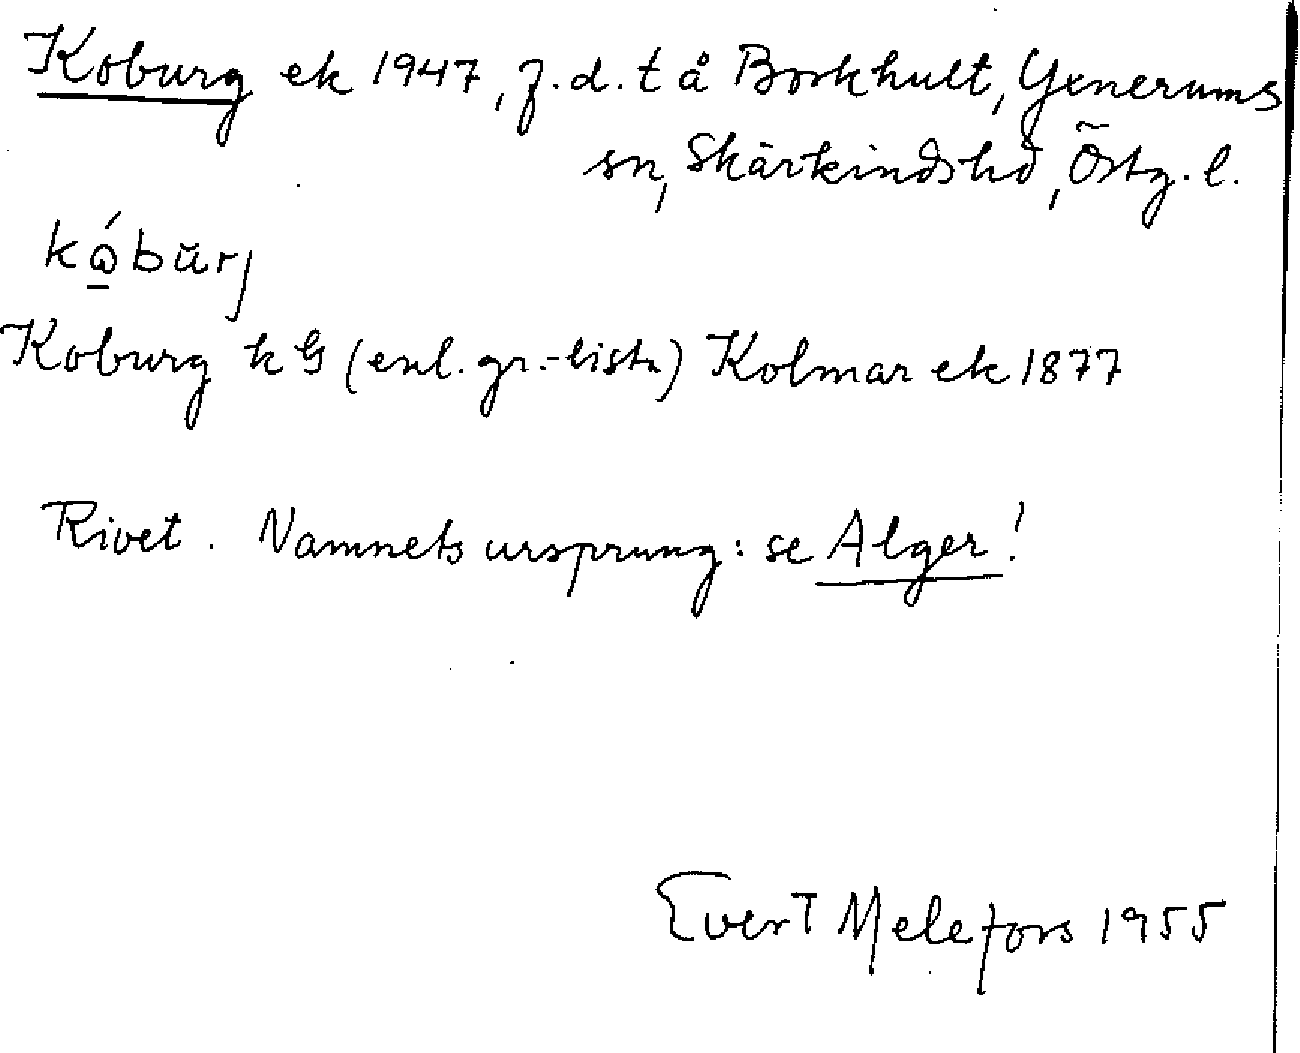 Koburg ek 1947, f.d.t å Borkhult, Yxnerums
sn, Skärkinds hd, Östg.l.
kώ̱bŭrj
Koburg k G (enl. gr.-lista) Kolmar ek 1877
Rivet. Namnets ursprung: se Alger!
Evert Melefors 1955